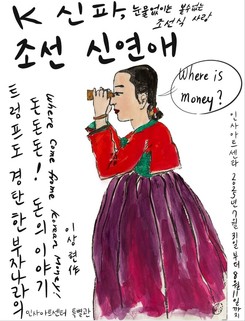 K 신파,
눈물없이는 볼수없는
조선식 사랑
조선 신연애
Where is
Money?
트럼프도 경탄한 부자나라의
돈돈돈! 돈의 이야기
Where Come from Korean Money!
이상현 作
인사아트센타 2025년 7월 31일부터 8월 11일까지
인사아트센터 특별관